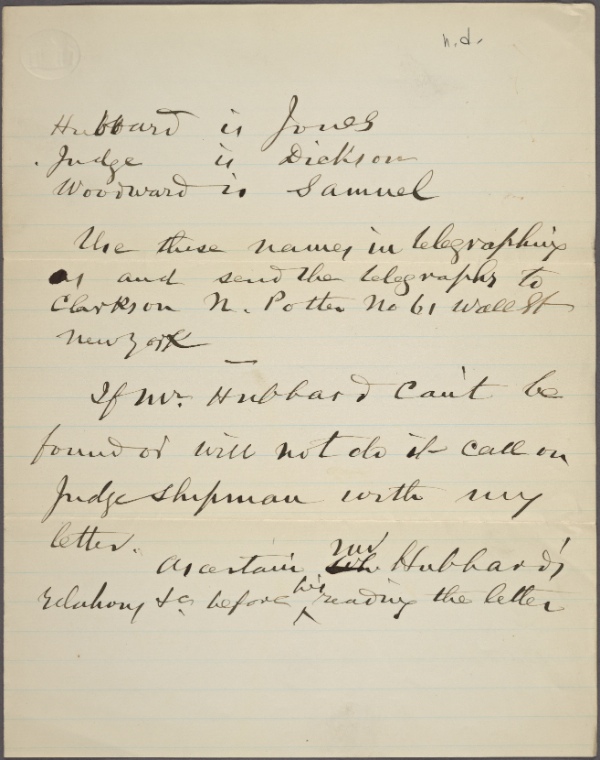 n.d.
Hubbard is Jones
Judge is Dickson
Woodward is Samuel
Use these names in telegraphing
as and send the telegraphs to
Clarkson N. Potter No 61 Wall St
New York
If Mr. Hubbard can't be
found or will not do it call on
Judge Shipman with my
letter.
Ascertain Mr Hubbard's
relations &c before his reading the letter